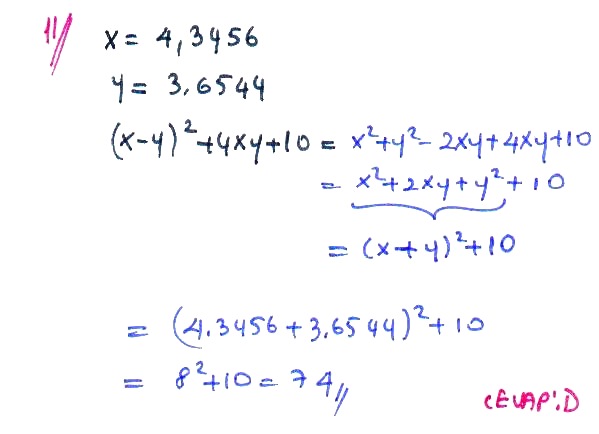 11/ x = 4,3456
y = 3.6544
(x-y)²+4xy+10 = x²+y²-2xy+4xy+10
= x²+2xy+y²+10
= (x+y)²+10
= (4.3456+3.6544)²+10
= 8²+10 = 74//
CEVAP:D